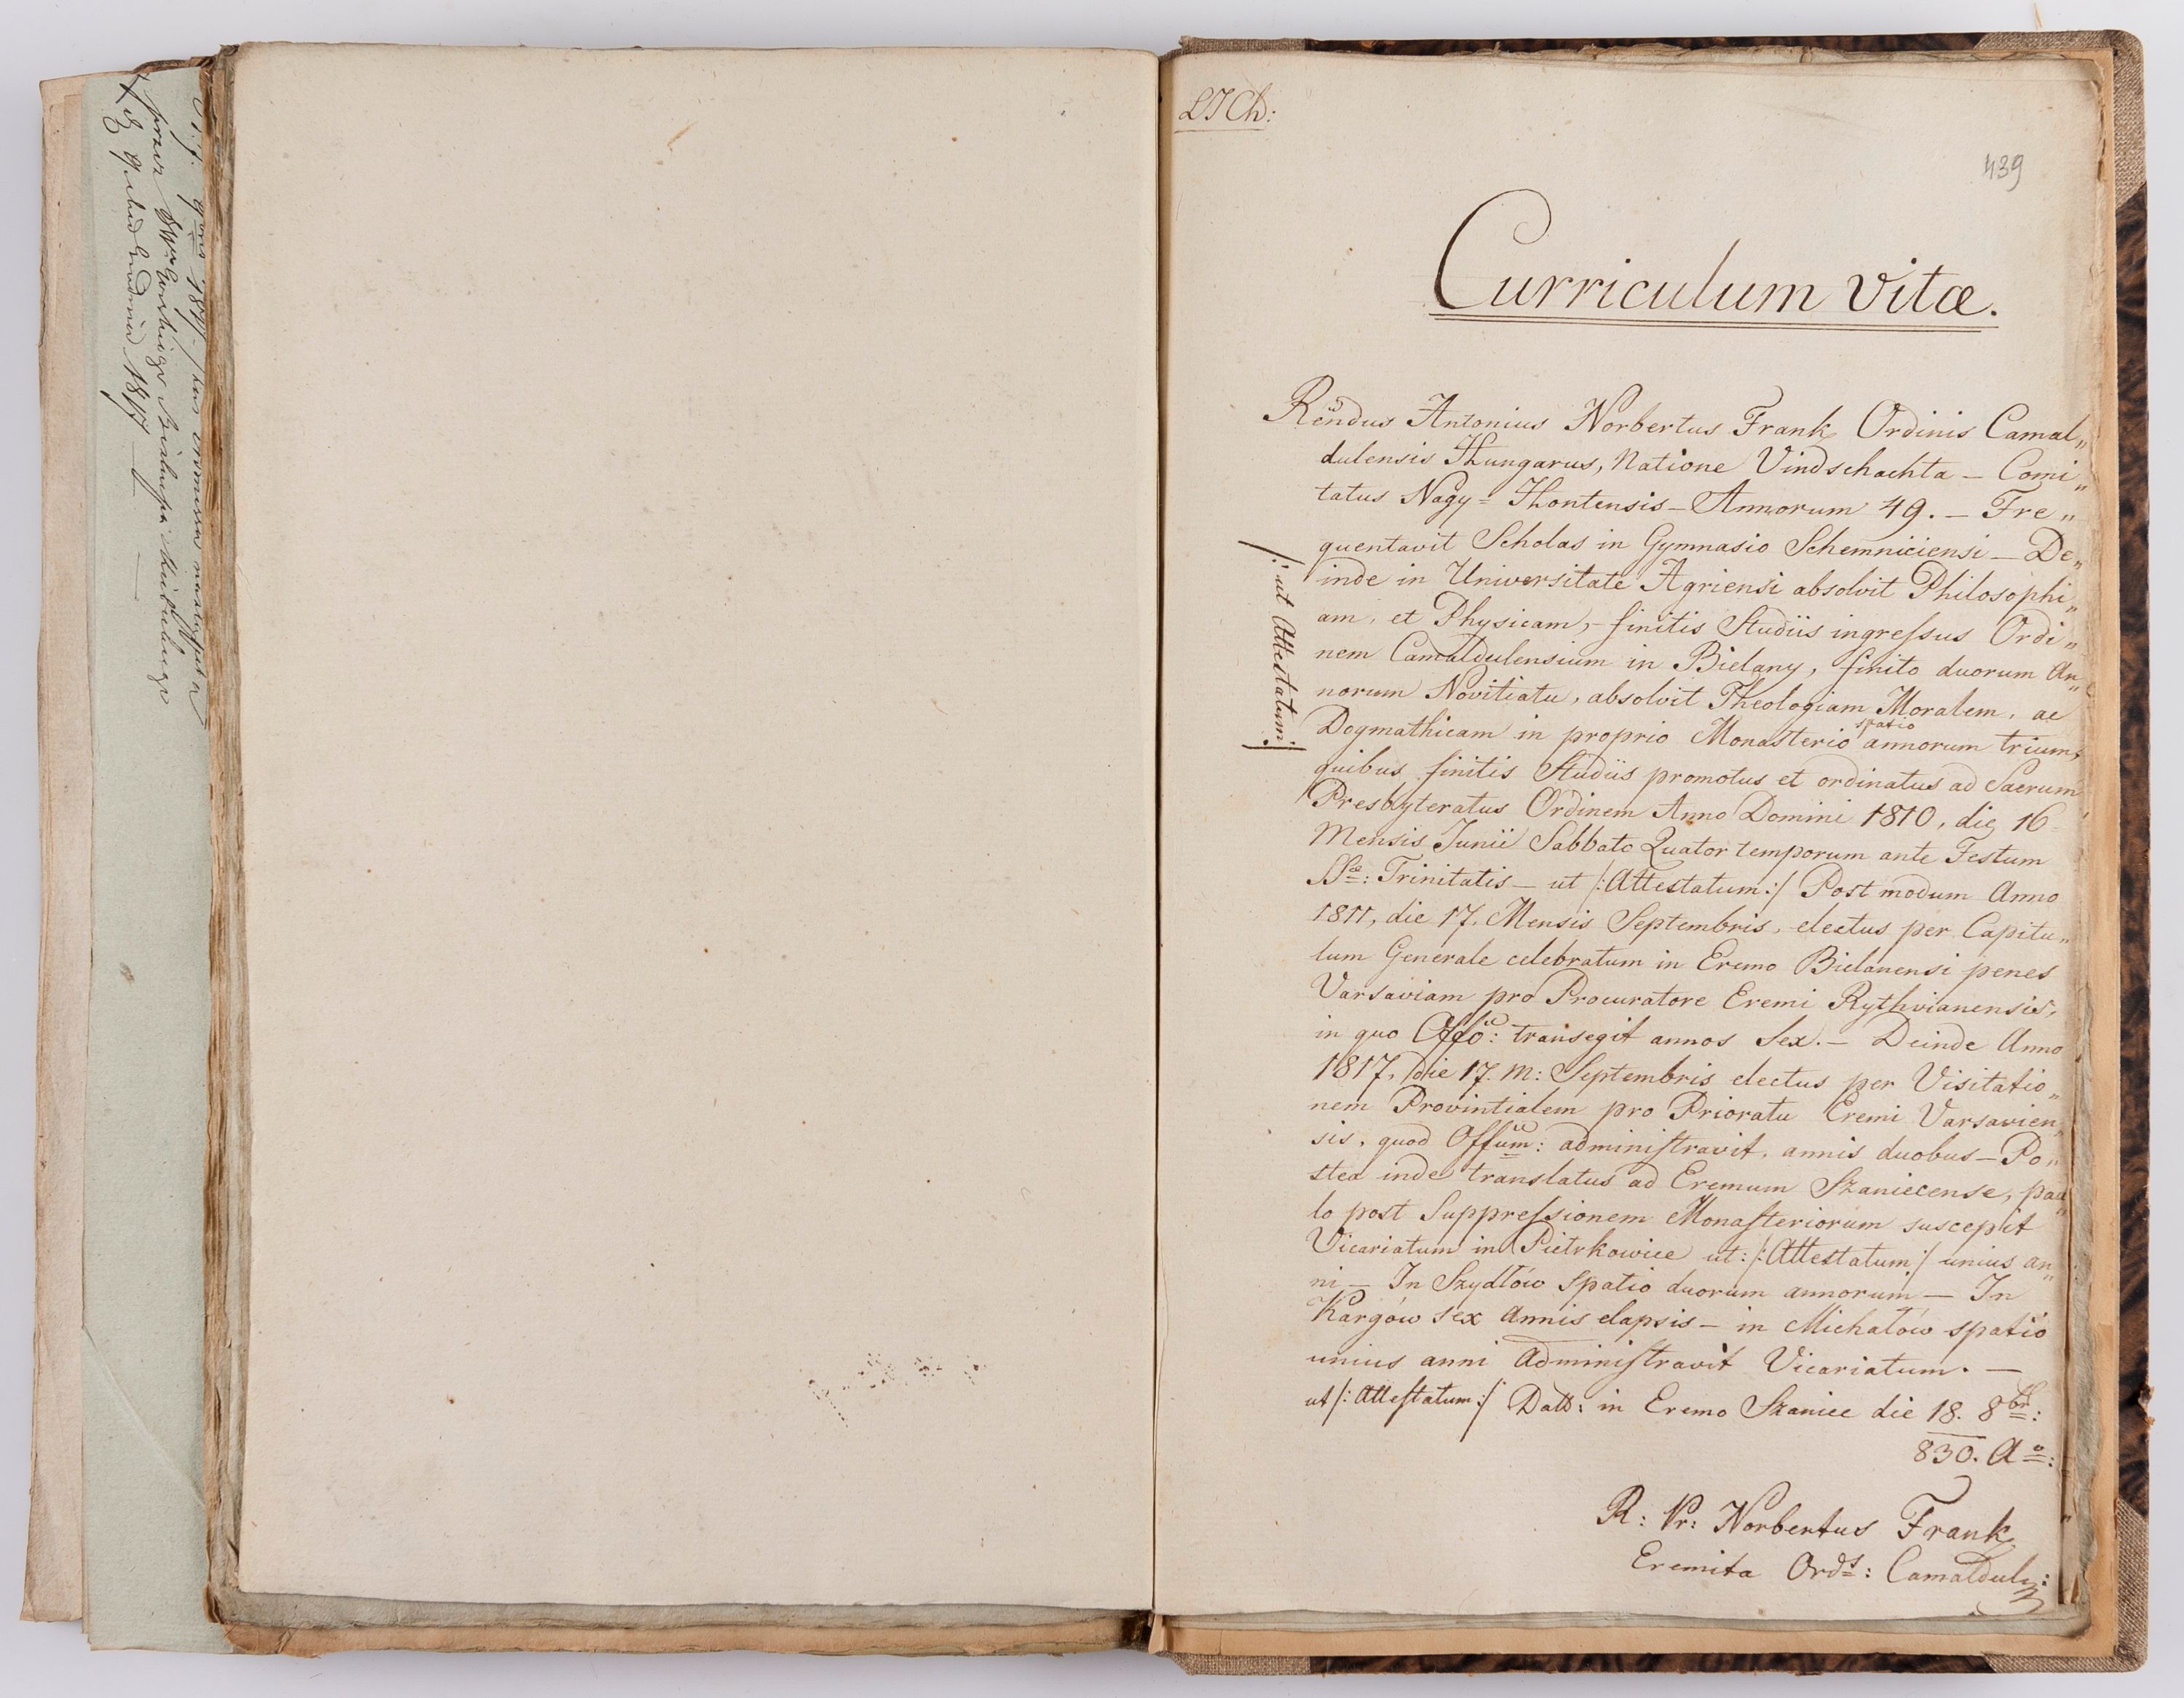 LJCh:
439
Curriculum vitæ.
Rendus Antonius Norbertus Frank Ordinis Camal„
dulensis Hungarus, Natione Vindschachta – Comi„
tatus Nagy=Hontensis – Annorum 49. – Fre„
quentavit Scholas in Gymnasio Schemniciensi – De„
inde in Universitate Agriensi absolvit Philosophi„
am, et Physicam, – finitis Studiis ingreſsus Ordi„
nem Camaldulensium in Bielany, finito duorum An„
norum Novitiatu, absolvit Theologiam Moralem, ac
/: ut Attestatum :/
Dogmathicam in proprio Monasterio spatio annorum trium,
quibus finitis Studiis promotus et ordinatus ad Sacrum
Presbyteratus Ordinem Anno Domini 1810, die 16
Mensis Junii Sabbato Quator temporum ante Festum
SSæ: Trinitatis – ut /: Attestatum :/ Post modum Anno
1811, die 17. Mensis Septembris, electus per Capitu„
lum Generale celebratum in Eremo Bielanensi penes
Varsaviam pro Procuratore Eremi Rythvianensis,
in quo Offo: transegit annos Sex. – Deinde Anno
1817, die 17. m: Septembris electus per Visitatio„
nem Provintialem pro Prioratu Eremi Varsavien„
sis, quod Offum: adminiſtravit, annis duobus – Po„
stea inde translatus ad Eremum Szaniecense, pau„
lo post Suppreſsionem Monaſteriorum suscepit
Vicariatum in Pietrkowice ut: /: Attestatum :/ unius an„
ni – In Szydłów Spatio duorum annorum – In
Kargów sex Annis elapsis – in Michałów spatio
unius anni Adminiſtravit Vicariatum. –
ut /: Atteſtatum :/ Datt: in Eremo Szaniec die 18. 8br:
830. Ao:
R: Pr: Norbertus Frank
Eremita Ords: Camaldul: